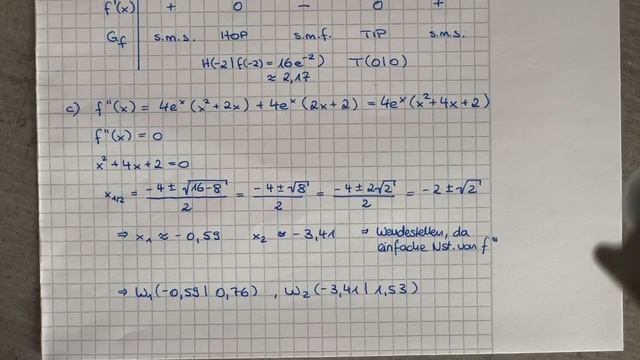 f'(x) + 0 − 0 +
Gf s.m.s. HOP s.m.f. TIP s.m.s.
H(-2|f(-2) = 16e⁻²) T(0|0)
≈ 2,17
c) f"(x) = 4eˣ(x²+2x) + 4eˣ(2x+2) = 4eˣ(x²+4x+2)
f"(x) = 0
x²+4x+2=0
x₁/₂ = (-4 ± √(16-8))/2 = (-4 ± √8)/2 = (-4 ± 2√2)/2 = -2 ± √2
⇒ x₁ ≈ -0,59 x₂ ≈ -3,41 ⇒ Wendestellen, da
einfache Nst. von f"
⇒ W₁(-0,59|0,76) , W₂(-3,41|1,53)